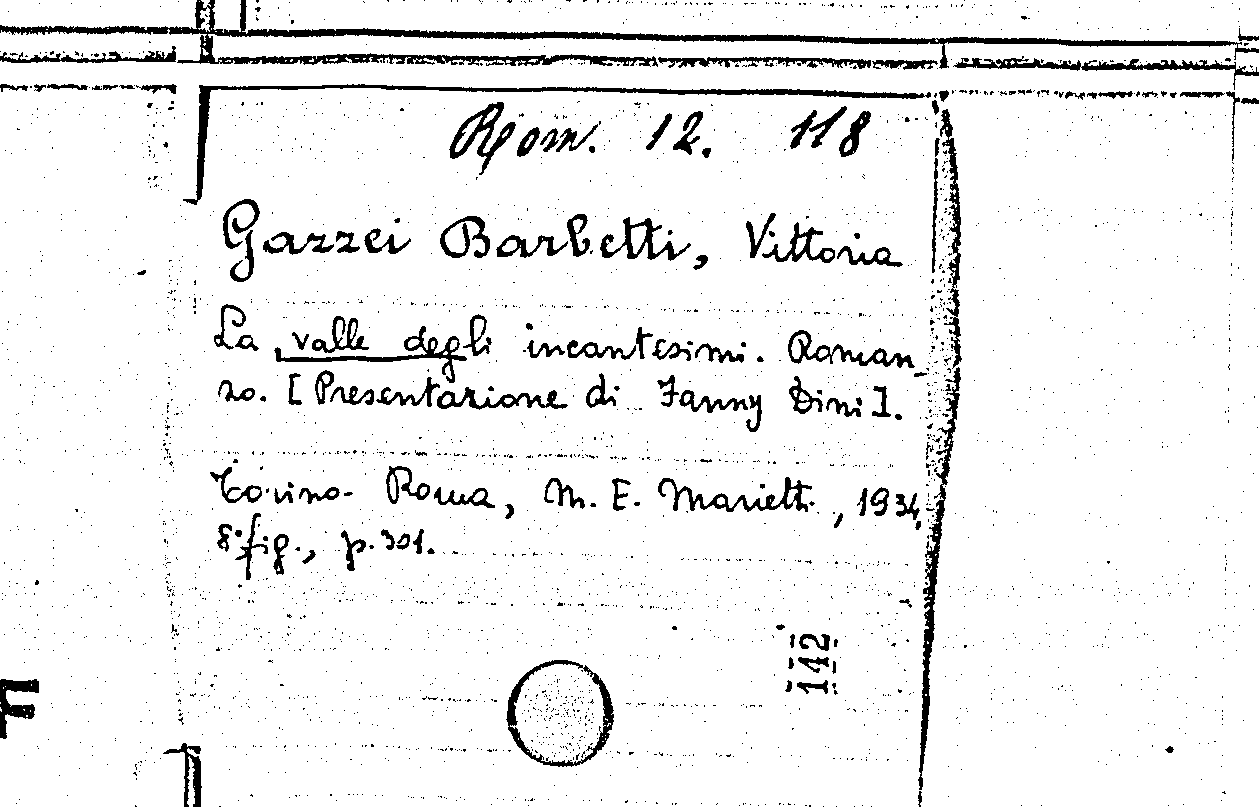 Rom. 12. 118
Gazzei Barbetti, Vittoria
La valle degli incantesimi. Roman
zo. [Presentazione di Fanny Dini].
Torino-Roma, M. E. Marietti, 1934,
8° fig., p. 301.
142
F